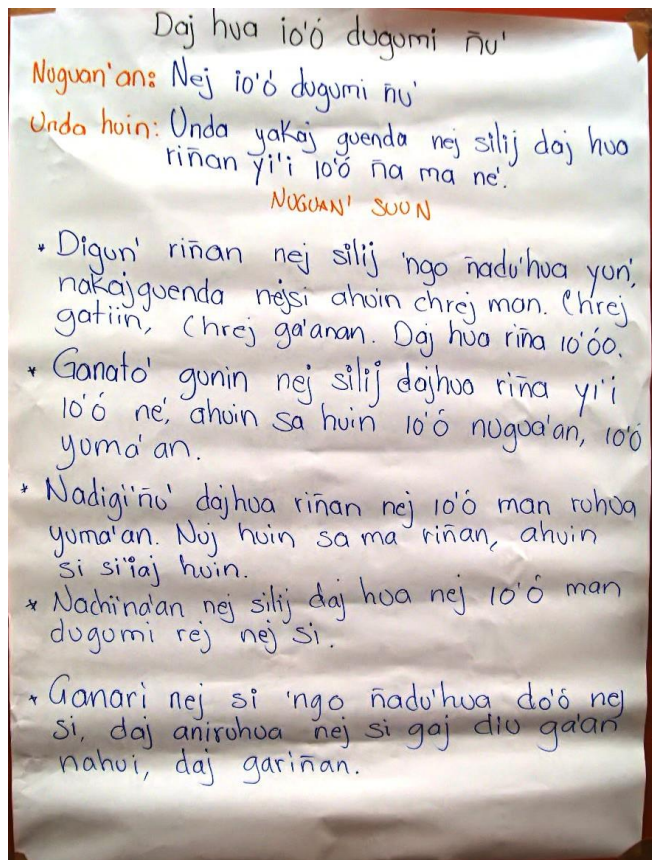 Daj hua io'ó dugumi ñu'
Nuguan'an: Nej io'ó dugumi ñu'
Unda huin: Unda yakaj guenda nej silij daj hua
riñan yi'i io'ó ña ma ne'.
NUGUAN' SUUN
* Digun' riñan nej silij 'ngo ñadu'hua yun',
nakajguenda nejsi ahuin chrej man. Chrej
gatiin, Chrej ga'anan. Daj hua riña io'óo.
* Ganato' gunin nej silij dajhua riña yi'i
io'ó ne', ahuin sa huin io'ó nugua'an, io'ó
yuma'an.
* Nadigi'ñu' dajhua riñan nej io'ó man ruhua
yuma'an. Nuj huin sa ma riñan, ahuin
si si'iaj huin.
* Nachi'na'an nej silij daj hua nej io'ó man
dugumi rej nej si.
* Ganari nej si 'ngo ñadu'hua do'ó nej
si, daj aniruhua nej si gaj diu ga'an
nahui, daj gariñan.